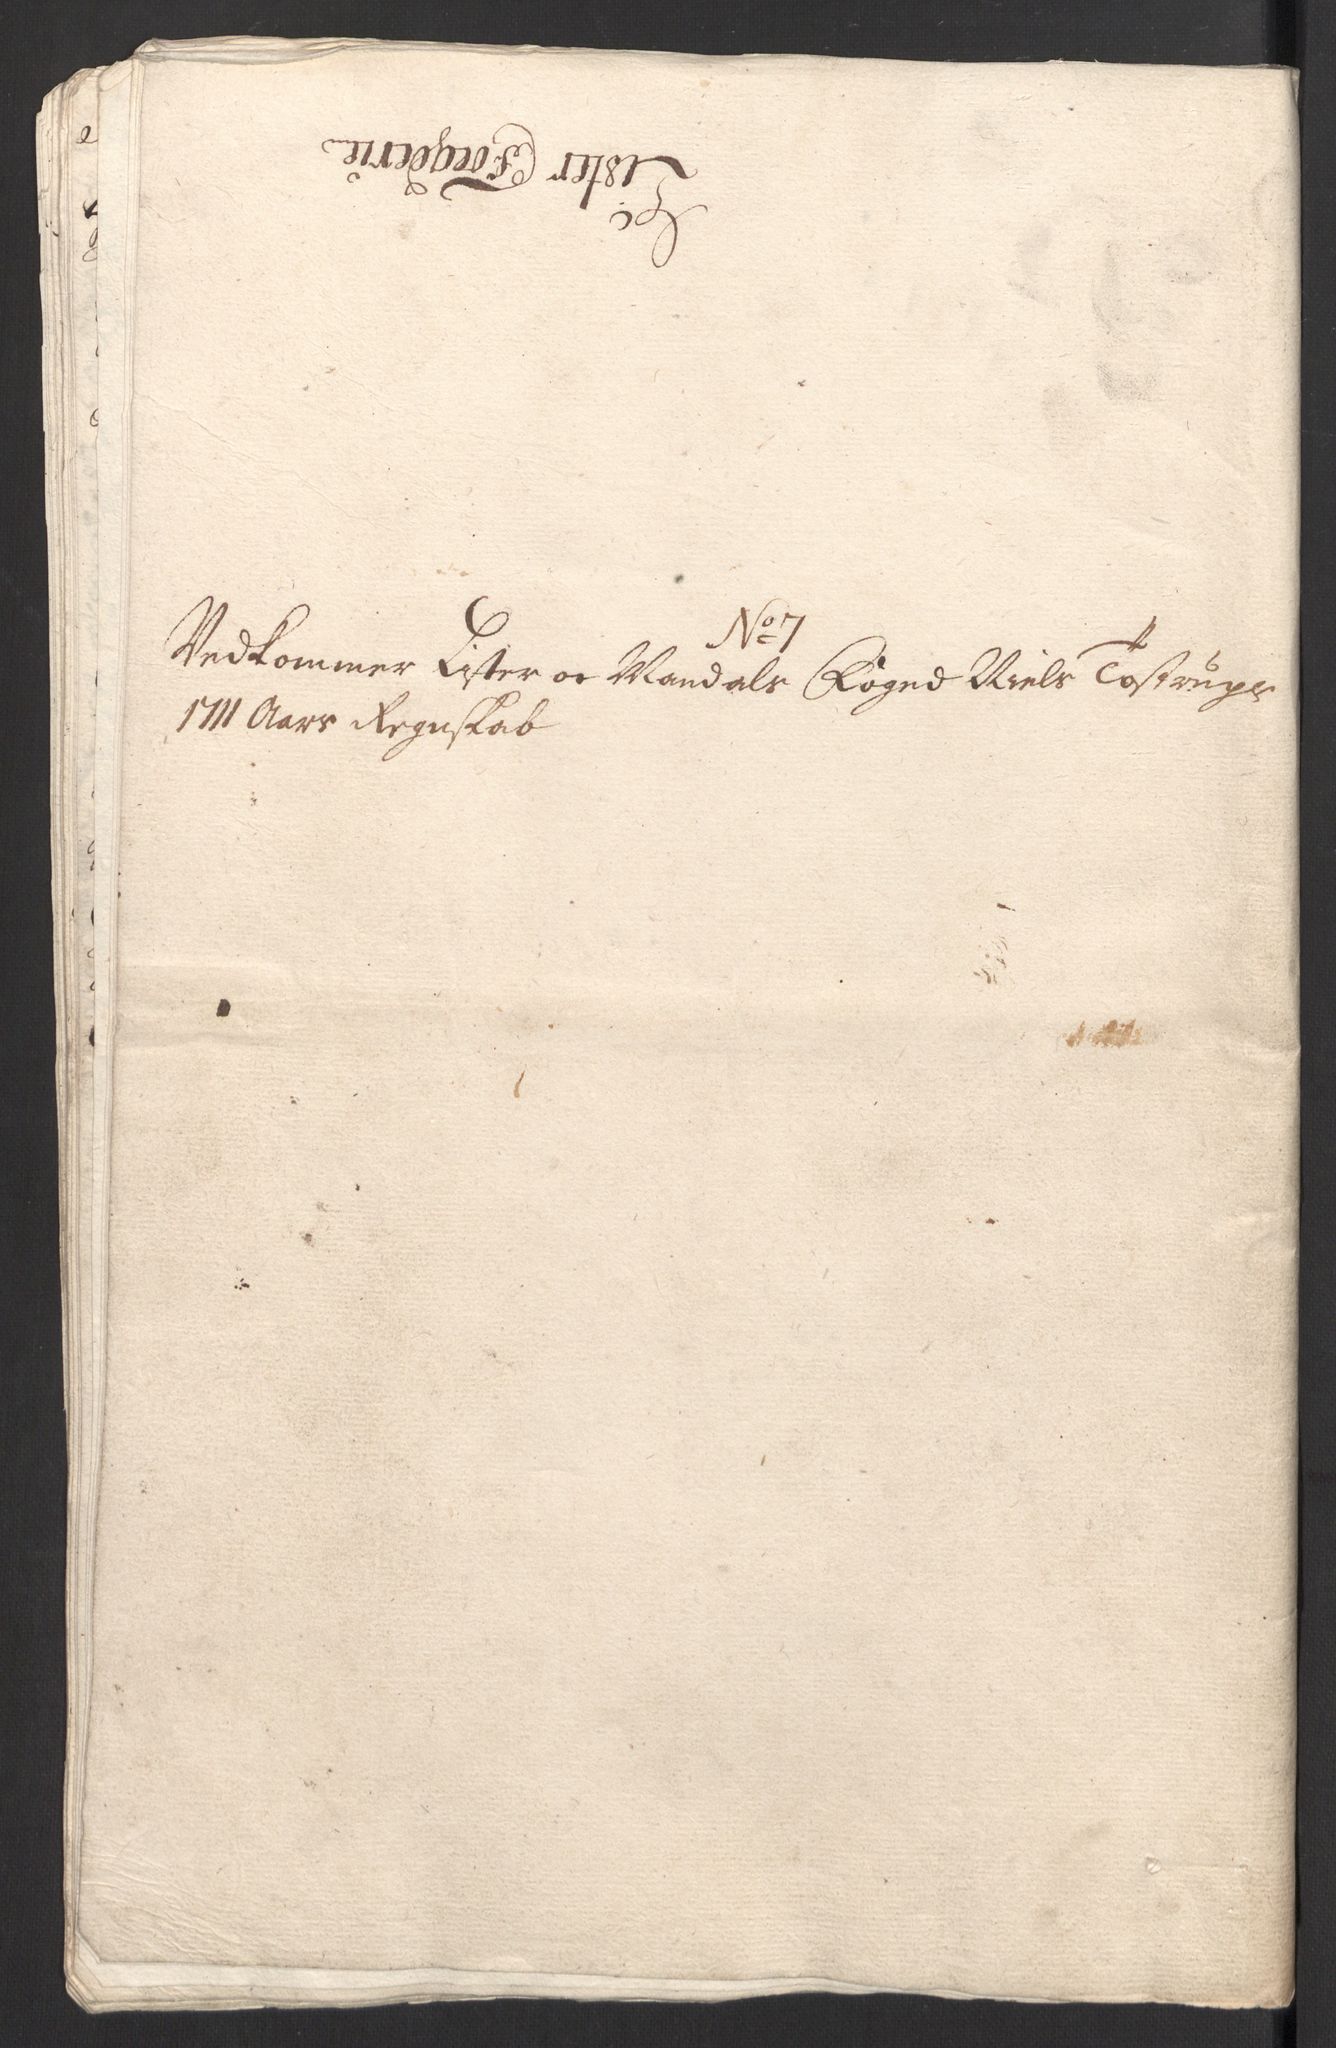 Lister Fogderie
No 7
Vedkommer Lister oc Mandals Foged Niels Tostrups
1711 Aars Regnskab